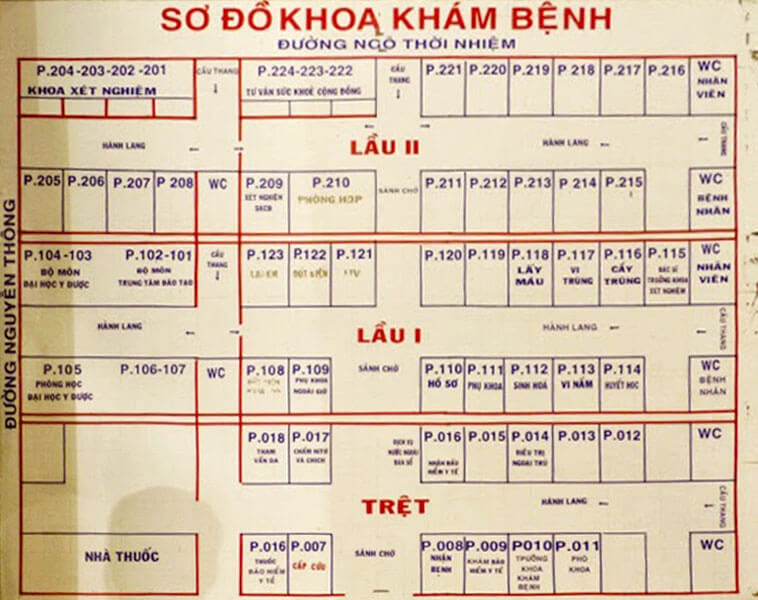 SƠ ĐỒ KHOA KHÁM BỆNH
ĐƯỜNG NGÔ THỜI NHIỆM
ĐƯỜNG NGUYỄN THÔNG
P.204-203-202-201
KHOA XÉT NGHIỆM
CẦU THANG
P.224-223-222
TƯ VẤN SỨC KHOẺ CỘNG ĐỒNG
CẦU THANG
P.221 P.220 P.219 P 218 P.217 P.216
WC NHÂN VIÊN
HÀNH LANG
LẦU II
HÀNH LANG
CẦU THANG
P.205 P.206 P.207 P 208
WC
P.209
XÉT NGHIỆM
P.210
PHÒNG HỌP
SẢNH CHỜ
P.211 P.212 P.213 P 214 P.215
WC BỆNH NHÂN
P.104-103
BỘ MÔN
ĐẠI HỌC Y DƯỢC
P.102-101
BỘ MÔN
TRUNG TÂM ĐÀO TẠO
CẦU THANG
P.123
P.122
P.121
P.120 P.119
P.118
LẤY MÁU
P.117
VI TRÙNG
P.116
CẤY TRÙNG
P.115
BÁC SĨ TRƯỞNG KHOA XÉT NGHIỆM
WC NHÂN VIÊN
HÀNH LANG
LẦU I
HÀNH LANG
CẦU THANG
P.105
PHÒNG HỌC
ĐẠI HỌC Y DƯỢC
P.106-107
WC
P.108
P.109
PHỤ KHOA
NGOÀI GIỜ
SẢNH CHỜ
P.110
HỒ SƠ
P.111
PHỤ KHOA
P.112
SINH HOÁ
P.113
VI NẤM
P.114
HUYẾT HỌC
WC BỆNH NHÂN
P.018
THAM VẤN DA
P.017
CHẤM NITƠ
VÀ CHÍCH
DỊCH VỤ
NƯỚC NGOÀI
P.016
NHẬN BẢO
HIỂM Y TẾ
P.015
P.014
ĐIỀU TRỊ
NGOẠI TRÚ
P.013 P.012
WC
TRỆT
HÀNH LANG
CẦU THANG
NHÀ THUỐC
P.016
THUỐC
BẢO HIỂM
Y TẾ
P.007
CẤP CỨU
SẢNH CHỜ
P.008
NHẬN
BỆNH
P.009
KHÁM BẢO
HIỂM Y TẾ
P010
TRƯỞNG
KHOA
KHÁM
BỆNH
P.011
PHÓ
KHOA
WC